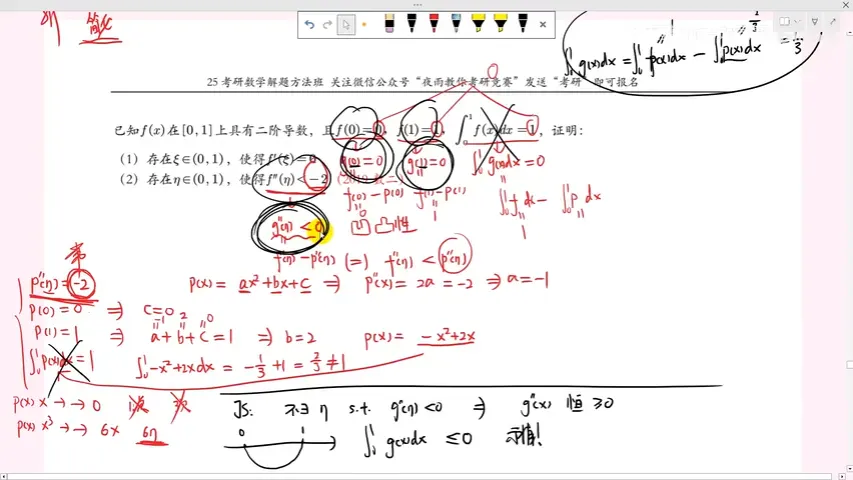 简化
∫₀¹ g(x)dx = ∫₀¹ f(x)dx − ∫₀¹ p(x)dx = 1/3
1
2/3
25 考研数学解题方法班 关注微信公众号“夜雨教你考研竞赛”发送“考研”即可报名
0
已知 f(x) 在 [0,1] 上具有二阶导数，且 f(0)=0，f(1)=1，∫₀¹ f(x)dx=1，证明：
(1) 存在 ξ∈(0,1)，使得 f'(ξ)=0
g(0)=0 g(1)=0 ∫₀¹ g(x)dx=0
(2) 存在 η∈(0,1)，使得 f''(η)<−2 (2019 数二)
f(0)−p(0) f(1)−p(1) ∫₀¹ f dx − ∫₀¹ p dx
0 1 1
g''(η)<0 凹凸性
f''(η)−p''(η) (=) f''(η)<p''(η)
常
p''(η)=−2 p(x)=ax²+bx+c ⇒ p''(x)=2a=−2 ⇒ a=−1
p(0)=0 ⇒ c=0
−1 2 0
p(1)=1 ⇒ a+b+c=1 ⇒ b=2 p(x)=−x²+2x
∫₀¹ p(x)dx=1 ∫₀¹ −x²+2x dx = −1/3+1 = 2/3 ≠ 1
p(x) x → → 0 1次 3次
反: 不∃η s.t. g''(η)<0 ⇒ g''(x) 恒 ≥0
p(x) x³ → → 6x 6η
0 1
∫₀¹ g(x)dx ≤0 矛盾!